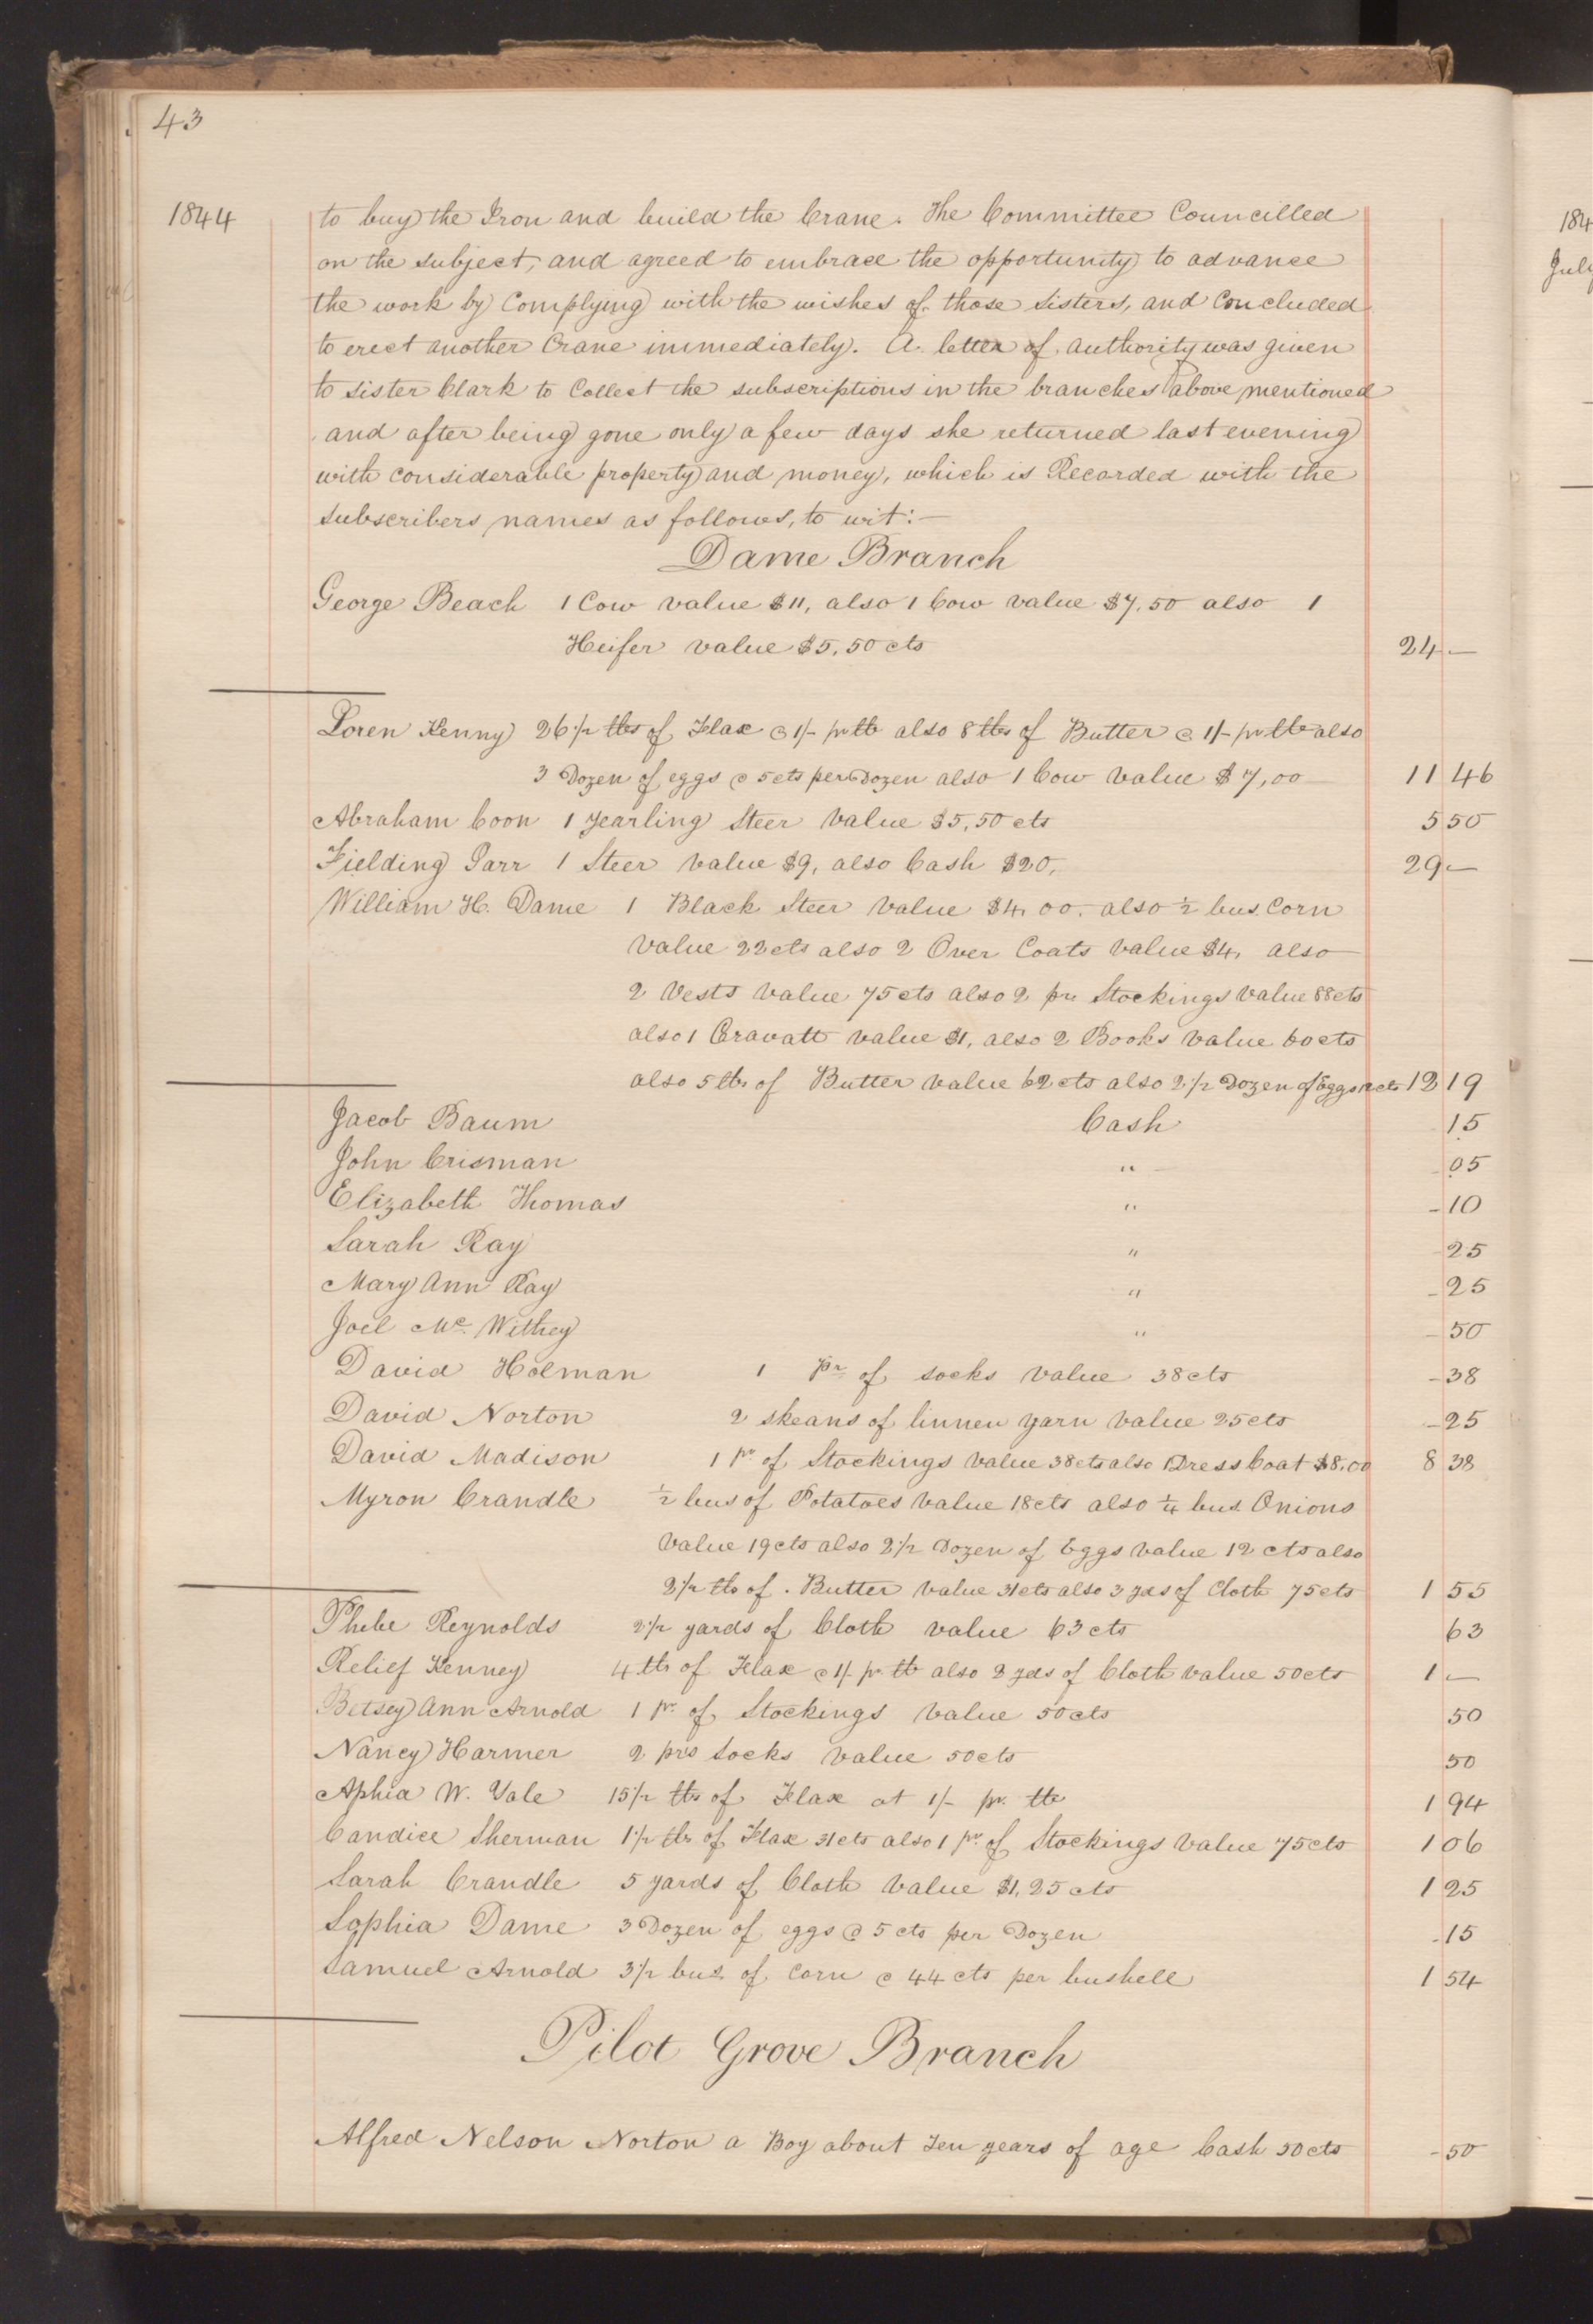 43
1844 to buy the Iron and build the Crane. The Committee Councilled
on the subject, and agreed to embrace the opportunity to advance
the work by Complying with the wishes of those sisters, and Concluded
to erect another Crane immediately. A letter of authority was given
to sister Clark to Collect the subscriptions in the branches above mentioned
and after being gone only a few days she returned last evening
with considerable property and money, which is Recorded with the
subscribers names as follows, to wit:—
Dame Branch
George Beach 1 Cow value $11, also 1 Cow value $7.50 also 1
Heifer value $5,50 cts 24 —
Loren Kenny 26 1/2 lbs of Flax @ 1/- pr lb also 8 lbs of Butter @ 1/- pr lb also
3 Dozen of eggs @ 5 cts per Dozen also 1 Cow value $7,00 11 46
Abraham Coon 1 yearling Steer value $5,50 cts 5 50
Fielding Garr 1 Steer value $9, also Cash $20, 29 —
William H. Dame 1 Black Steer value $4,00. also 1/2 bus. Corn
value 22 cts also 2 Over Coats value $4, also
2 Vests value 75 cts also 2 pr Stockings value 88 cts
also 1 Cravatt value $1, also 2 Books value 60 cts
also 5 lbs of Butter value 62 cts also 2 1/2 Dozen of Eggs 12 cts 12 19
Jacob Baum Cash 15
John Crisman " 05
Elizabeth Thomas " - 10
Sarah Ray " - 25
Mary Ann Ray " - 25
Joel Mc. Withey " - 50
David Holman 1 Pr of socks value 38 cts - 38
David Norton 2 skeans of linnen yarn value 25 cts - 25
David Madison 1 Pr of Stockings value 38 cts also 1 Dress Coat $8.00 8 38
Myron Crandle 1/2 bus of Potatoes value 18 cts also 1/4 bus. Onions
value 19 cts also 2 1/2 Dozen of Eggs value 12 cts also
2 1/2 lbs of . Butter value 31 cts also 3 yds of Cloth 75 cts 1 55
Phebe Reynolds 2 1/2 yards of Cloth value 63 cts 63
Relief Kenney 4 lbs of Flax @ 1/- pr lb also 2 yds of Cloth value 50 cts 1 —
Betsey Ann Arnold 1 Pr. of Stockings value 50 cts 50
Nancy Harmer 2 prs socks value 50 cts 50
Aphia W. Yale 15 1/2 lbs of Flax at 1/- pr. lb 1 94
Candice Sherman 1 1/2 lbs of Flax 31 cts also 1 pr of Stockings value 75 cts 1 06
Sarah Crandle 5 yards of Cloth value $1,25 cts 1 25
Sophia Dame 3 Dozen of eggs @ 5 cts per Dozen - 15
Samuel Arnold 3 1/2 bus. of Corn @ 44 cts per bushell 1 54
Pilot Grove Branch
Alfred Nelson Norton a Boy about Ten years of age Cash 50 cts - 50
184
July